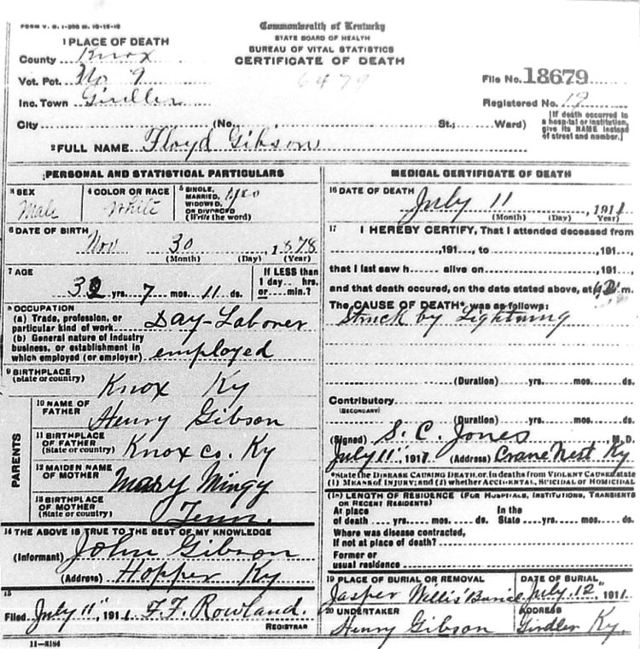 FORM V. S. 1-200 M. 10-15-10
Commonwealth of Kentucky
STATE BOARD OF HEALTH
BUREAU OF VITAL STATISTICS
CERTIFICATE OF DEATH
6479
1 PLACE OF DEATH
County Knox
Vot. Pct. No 9
Inc. Town Girdler
City (No. St.; Ward)
File No. 18679
Registered No. 12
[If death occurred to a hospital or institution, give its NAME instead of street and number.]
2 FULL NAME Floyd Gibson
PERSONAL AND STATISTICAL PARTICULARS
3 SEX Male
4 COLOR OR RACE White
5 SINGLE, MARRIED, WIDOWED, OR DIVORCED (Write the word) yes
6 DATE OF BIRTH
Nov 30, 1878
(Month) (Day) (Year)
7 AGE
32 yrs. 7 mos. 11 ds.
If LESS than 1 day... hrs. or... min.?
8 OCCUPATION
(a) Trade, profession, or particular kind of work Day-Laborer
(b) General nature of industry business, or establishment in which employed (or employer) employed
9 BIRTHPLACE (State or country)
Knox Ky
PARENTS
10 NAME OF FATHER Henry Gibson
11 BIRTHPLACE OF FATHER (State or country) Knox co. Ky
12 MAIDEN NAME OF MOTHER Mary Mingy
13 BIRTHPLACE OF MOTHER (State or country) Tenn.
14 THE ABOVE IS TRUE TO THE BEST OF MY KNOWLEDGE
(Informant) John Gibson
(Address) Hopper Ky
15
Filed July 11", 1911 F. F. Rowland.
REGISTRAR
11-3184
MEDICAL CERTIFICATE OF DEATH
16 DATE OF DEATH
July 11, 1911
(Month) (Day) (Year)
17 I HEREBY CERTIFY, That I attended deceased from
, 191..., to , 191...,
that I last saw h... alive on , 191...,
and that death occured, on the date stated above, at m.
The CAUSE OF DEATH* was as follows:
Struck by Lightning
(Duration) yrs. mos. ds.
Contributory
(SECONDARY)
(Duration) yrs. mos. ds.
(Signed) S. C. Jones M. D.
July 11", 1911 (Address) Crane Nest Ky
*State the DISEASE CAUSING DEATH, or, in deaths from VIOLENT CAUSES state (1) MEANS OF INJURY; and (2) whether ACCIDENTAL, SUICIDAL or HOMICIDAL
18 LENGTH OF RESIDENCE (FOR HOSPITALS, INSTITUTIONS, TRANSIENTS OR RECENT RESIDENTS)
At place of death.... yrs..... mos..... ds. In the State..... yrs..... mos..... ds.
Where was disease contracted, if not at place of death?
Former or usual residence
19 PLACE OF BURIAL OR REMOVAL
Jasper Willis
DATE OF BURIAL
July, 12", 1911
20 UNDERTAKER
Henry Gibson
ADDRESS
Girdler Ky.